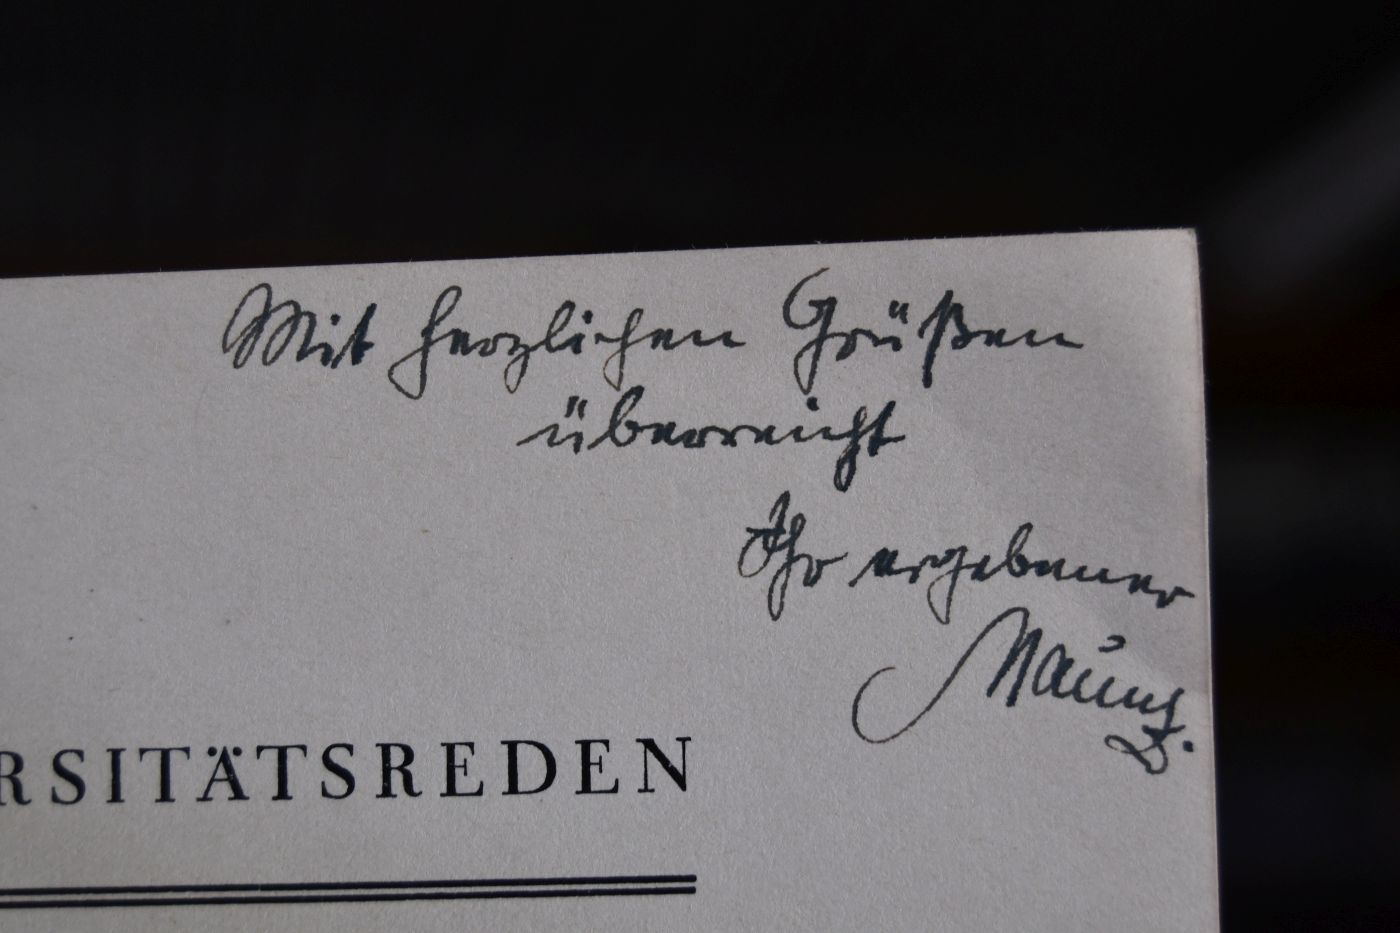 Mit herzlichen Grüßen
überreicht
Ihr ergebener
RSITÄTSREDEN